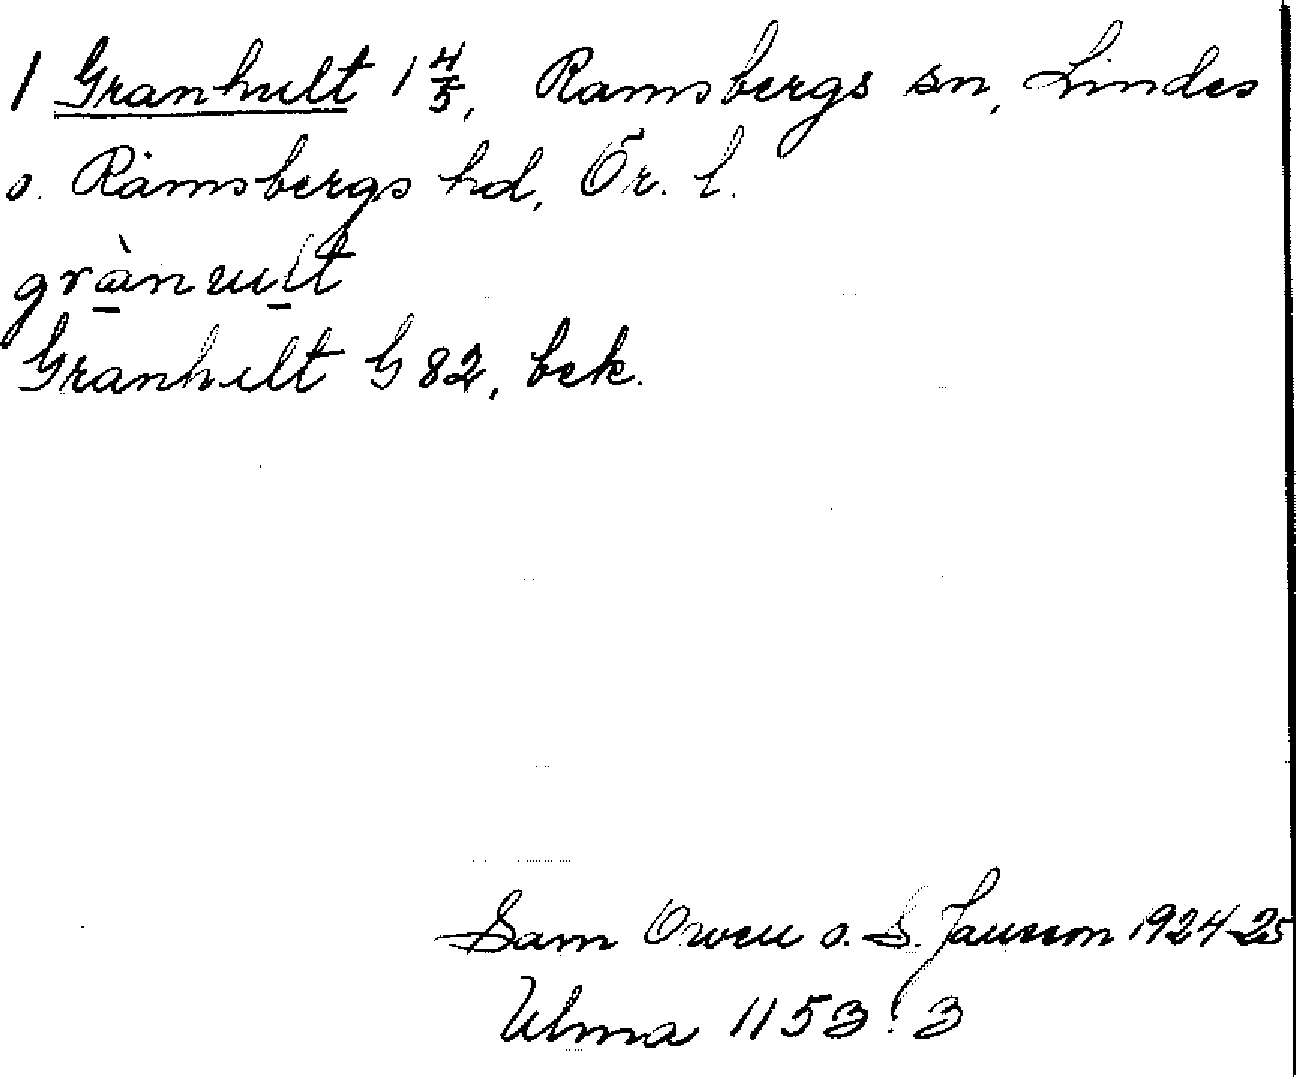 1 Granhult 1 4/5, Ramsbergs sn, Lindes
o. Ramsbergs hd, Ör. l.
grànult
Granhult G 82, bek.
Sam Owen o. S. Janson 1924-25
Ulma 1153:3